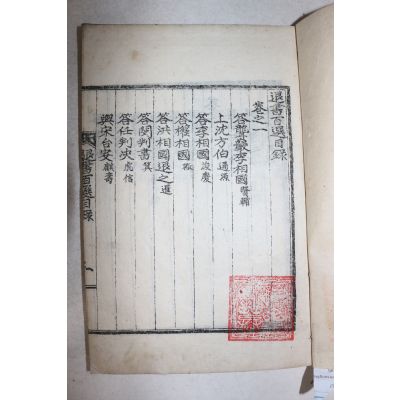 退書百選目錄
卷之一
答聾巖李相國 賢輔
上沈方伯 通源
答李相國 浚慶
答權相國 轍
答洪相國退之 暹
答閔判書 箕
答任判決 虎臣
與宋台叟 麒壽
退書百選目錄